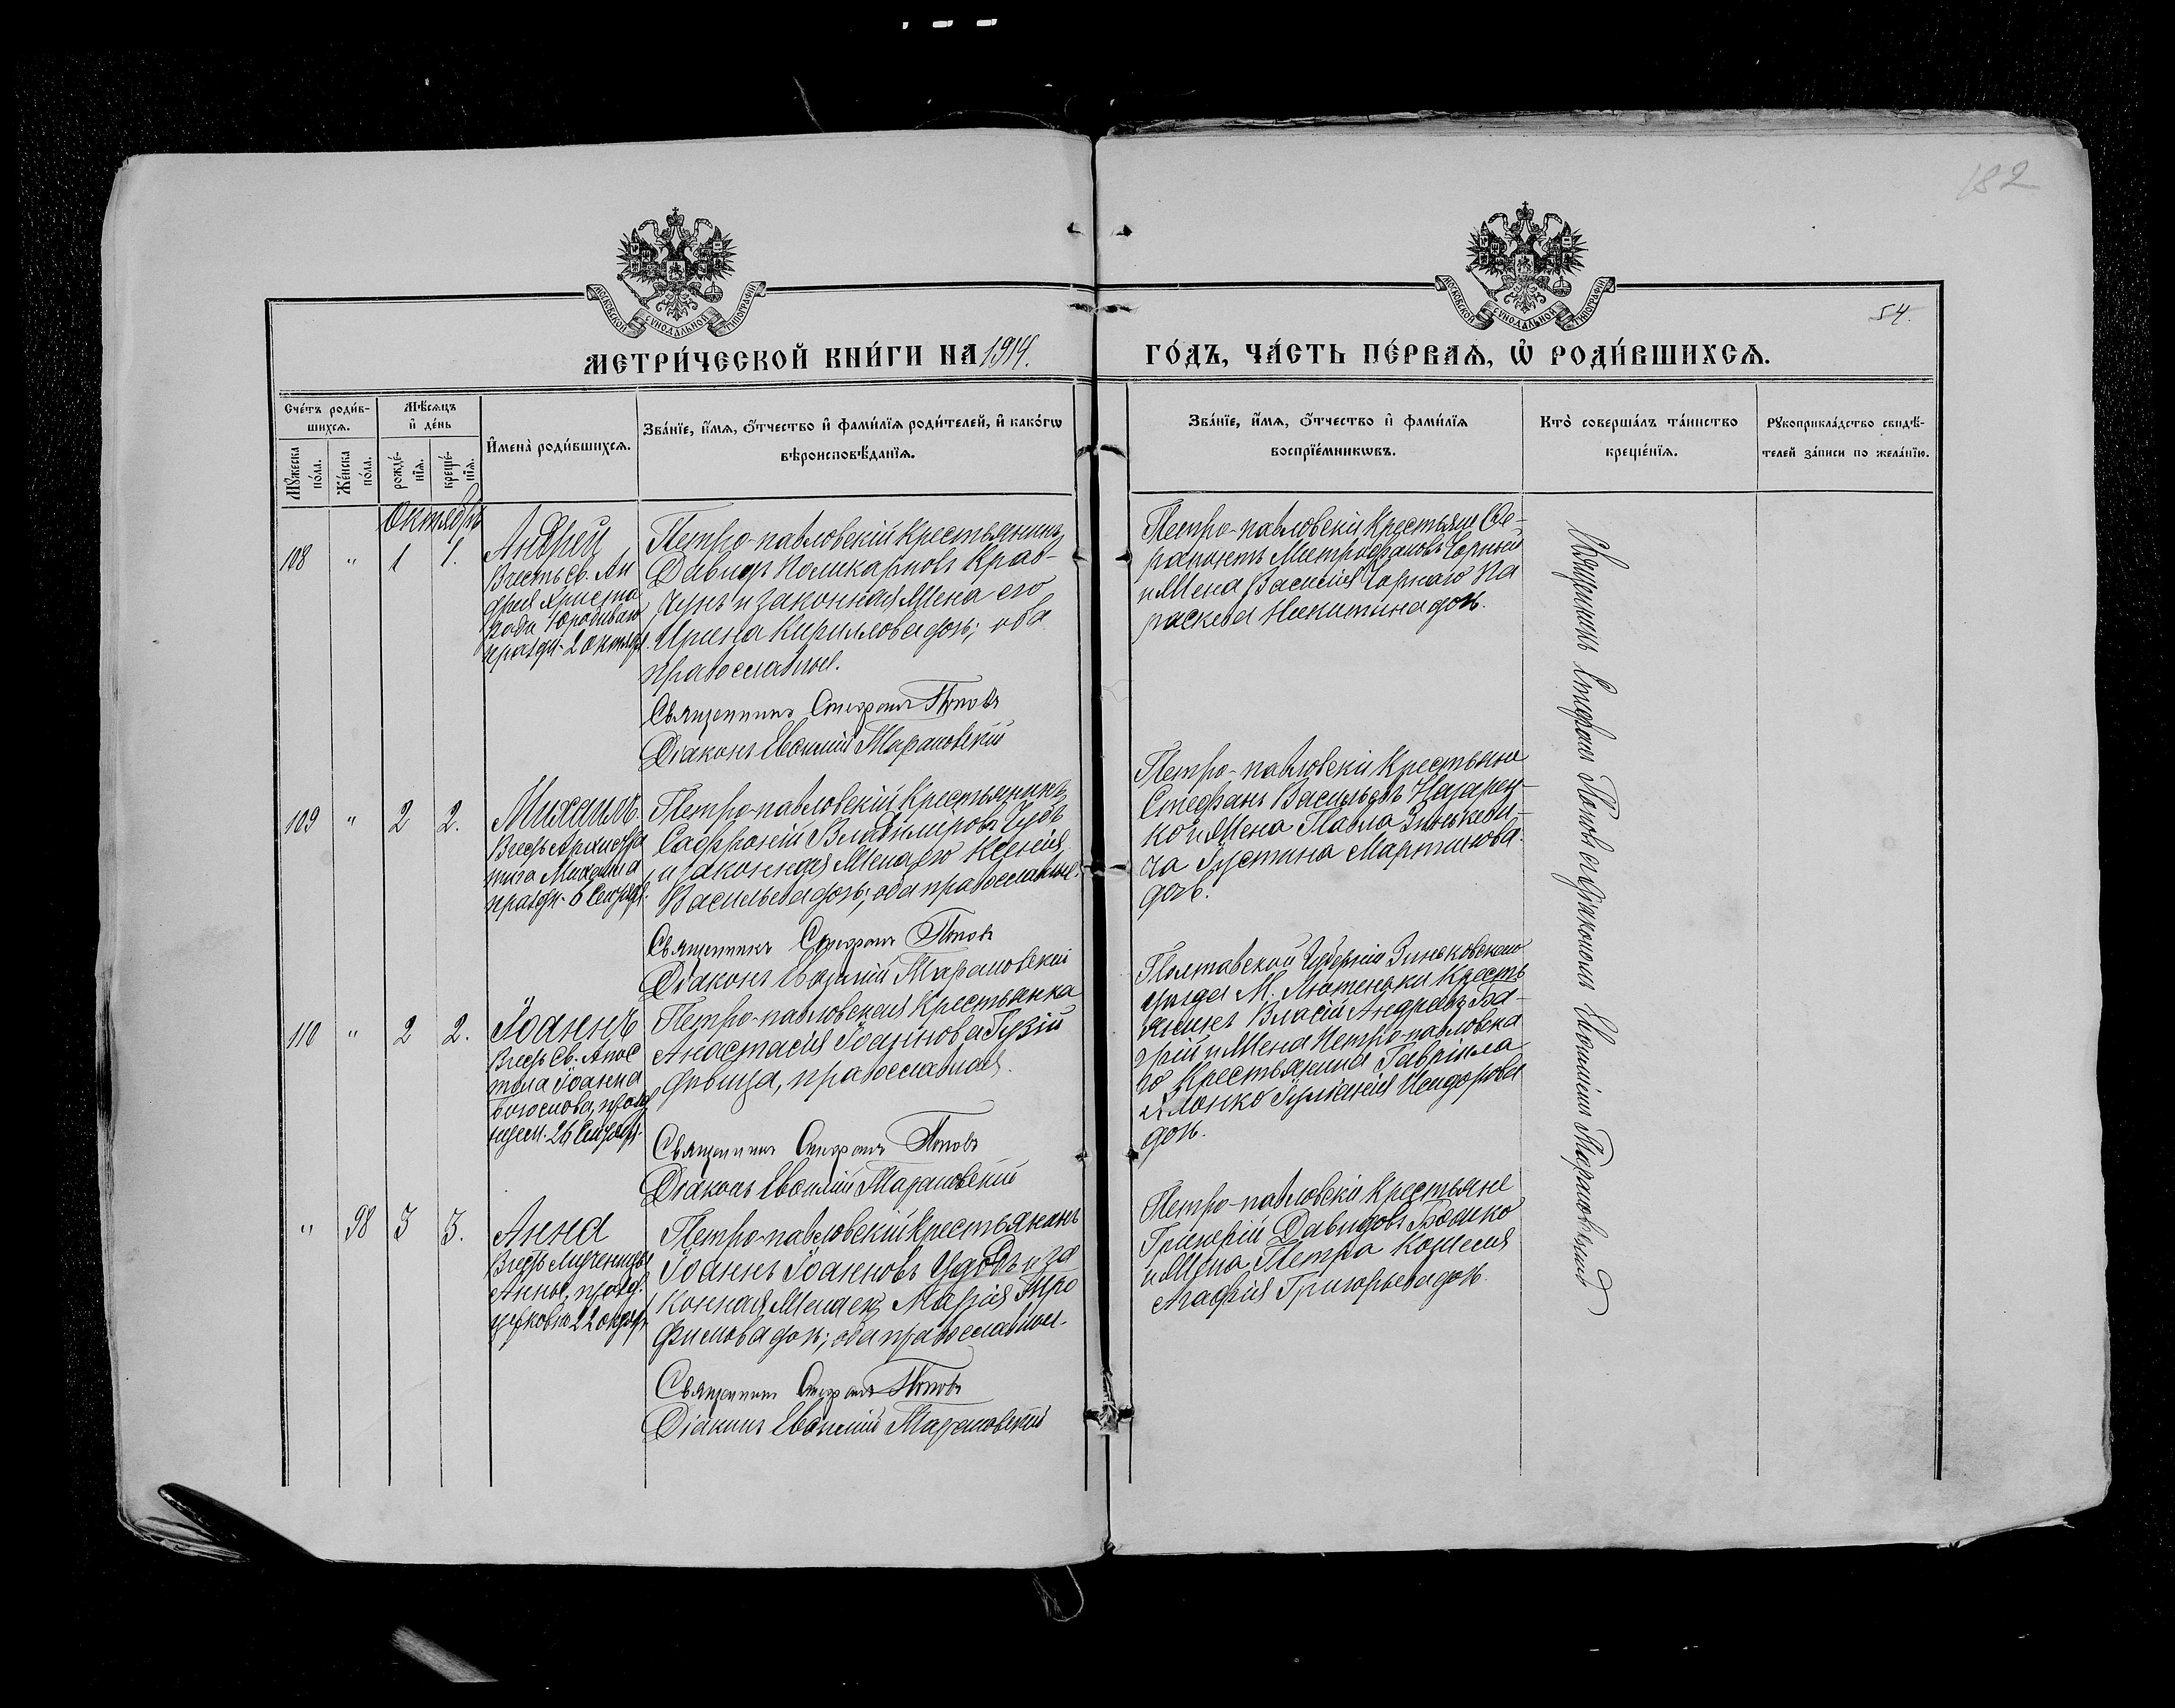 182
МОСКОВСКОЙ СУНОДАЛЬНОЙ ТИПОГРАФІИ
МОСКОВСКОЙ СУНОДАЛЬНОЙ ТИПОГРАФІИ
54.
МЕТРИ́ЧЕСКОЙ КНИ́ГИ НА 1914.
ГО́ДЪ, ЧА́СТЬ ПЕ́РВАѦ, Ѡ҆ РОДИ́ВШИХСѦ.
Сче́тъ роди́в-
шихсѧ.
Мꙋ́жеска
по́ла.
Же́нска
по́ла.
Мѣ́сѧцъ
и҆ де́нь
рожде́-
нїѧ.
креще́-
нїѧ.
И҆мена̀ роди́вшихсѧ.
Зва́нїе, и҆́мѧ, ѻ҆́тчество и҆ фами́лїѧ роди́телей, и҆ како́гѡ
вѣроисповѣ́данїѧ.
Зва́нїе, и҆́мѧ, ѻ҆́тчество и҆ фами́лїѧ
воспрїе́мникѡвъ.
Кто̀ соверша́лъ та́инство
креще́нїѧ.
Рꙋкоприкла́дство свидѣ́-
телей за́писи по жела́нїю.
Октябрь
108 " 1 1.
Андрей
Вчесть Св. Ан
дрея Христа
ради Юродиваго
праздн. 2 октябр.
Петро-павловскій крестьянинъ
Давидъ Поликарповъ Крав-
чунъ и законная Жена его
Ирина Кириллова дочь; оба
православные.
Священникъ Стефанъ Поповъ
Діаконъ Евѳимій Тарановскій
Петро-павловскіи Крестьяне Се-
рапіонъ Митрофановъ Чорный
и Жена Василія Чорнаго Па
раскева Никитина дочь.
109 " 2 2.
Михаилъ.
Вчесть Архистра
тига Михаила
праздн. 6 Сентябр.
Петро-павловскій Крестьянинъ
Софроній Владимировъ Чубъ
и законная Жена его Ксенія
Васильева дочь; оба православные.
Священникъ Стефанъ Поповъ
Діаконъ Евѳимій Тарановскій
Петро-павловскіи Крестьяне
Стефанъ Васильевъ Назарен-
ко и Жена Павла Зинькеви-
ча Іустина Мартинова
дочь.
110 " 2 2.
Іоаннъ
Вчесть Св. Апос
тола Іоанна
Богослова, празд
нуем. 26 Сентябр.
Петро-павловская Крестьянка
Анастасія Іоаннова Гузій
дѣвица, православная.
Священникъ Стефанъ Поповъ
Діаконъ Евѳимій Тарановскій
Полтавской Губерніи Зиньковскаго
уѣзда М. Лютеньки Кресть
янинъ Власій Андреевъ Ба-
грій и Жена Петро-павловска
го Крестьянина Гавріила
Яловко Іуліанія Исидорова
дочь.
" 98 3 3.
Анна
Вчесть Мученицы
Анны, празд.
церковію 22 октябр.
Петро-павловскій крестьянинъ
Іоаннъ Іоанновъ Удодъ и за
конная Жена его Марія Тро
фимова дочь; оба православные.
Священникъ Стефанъ Поповъ
Діаконъ Евѳимій Тарановскій
Петро-павловскіи Крестьяне
Григорій Давидовъ Бойко
и Жена Петра
Агафія Григорьева дочь.
Священникъ Стефанъ Поповъ съ діакономъ Евѳиміемъ Тарановскимъ